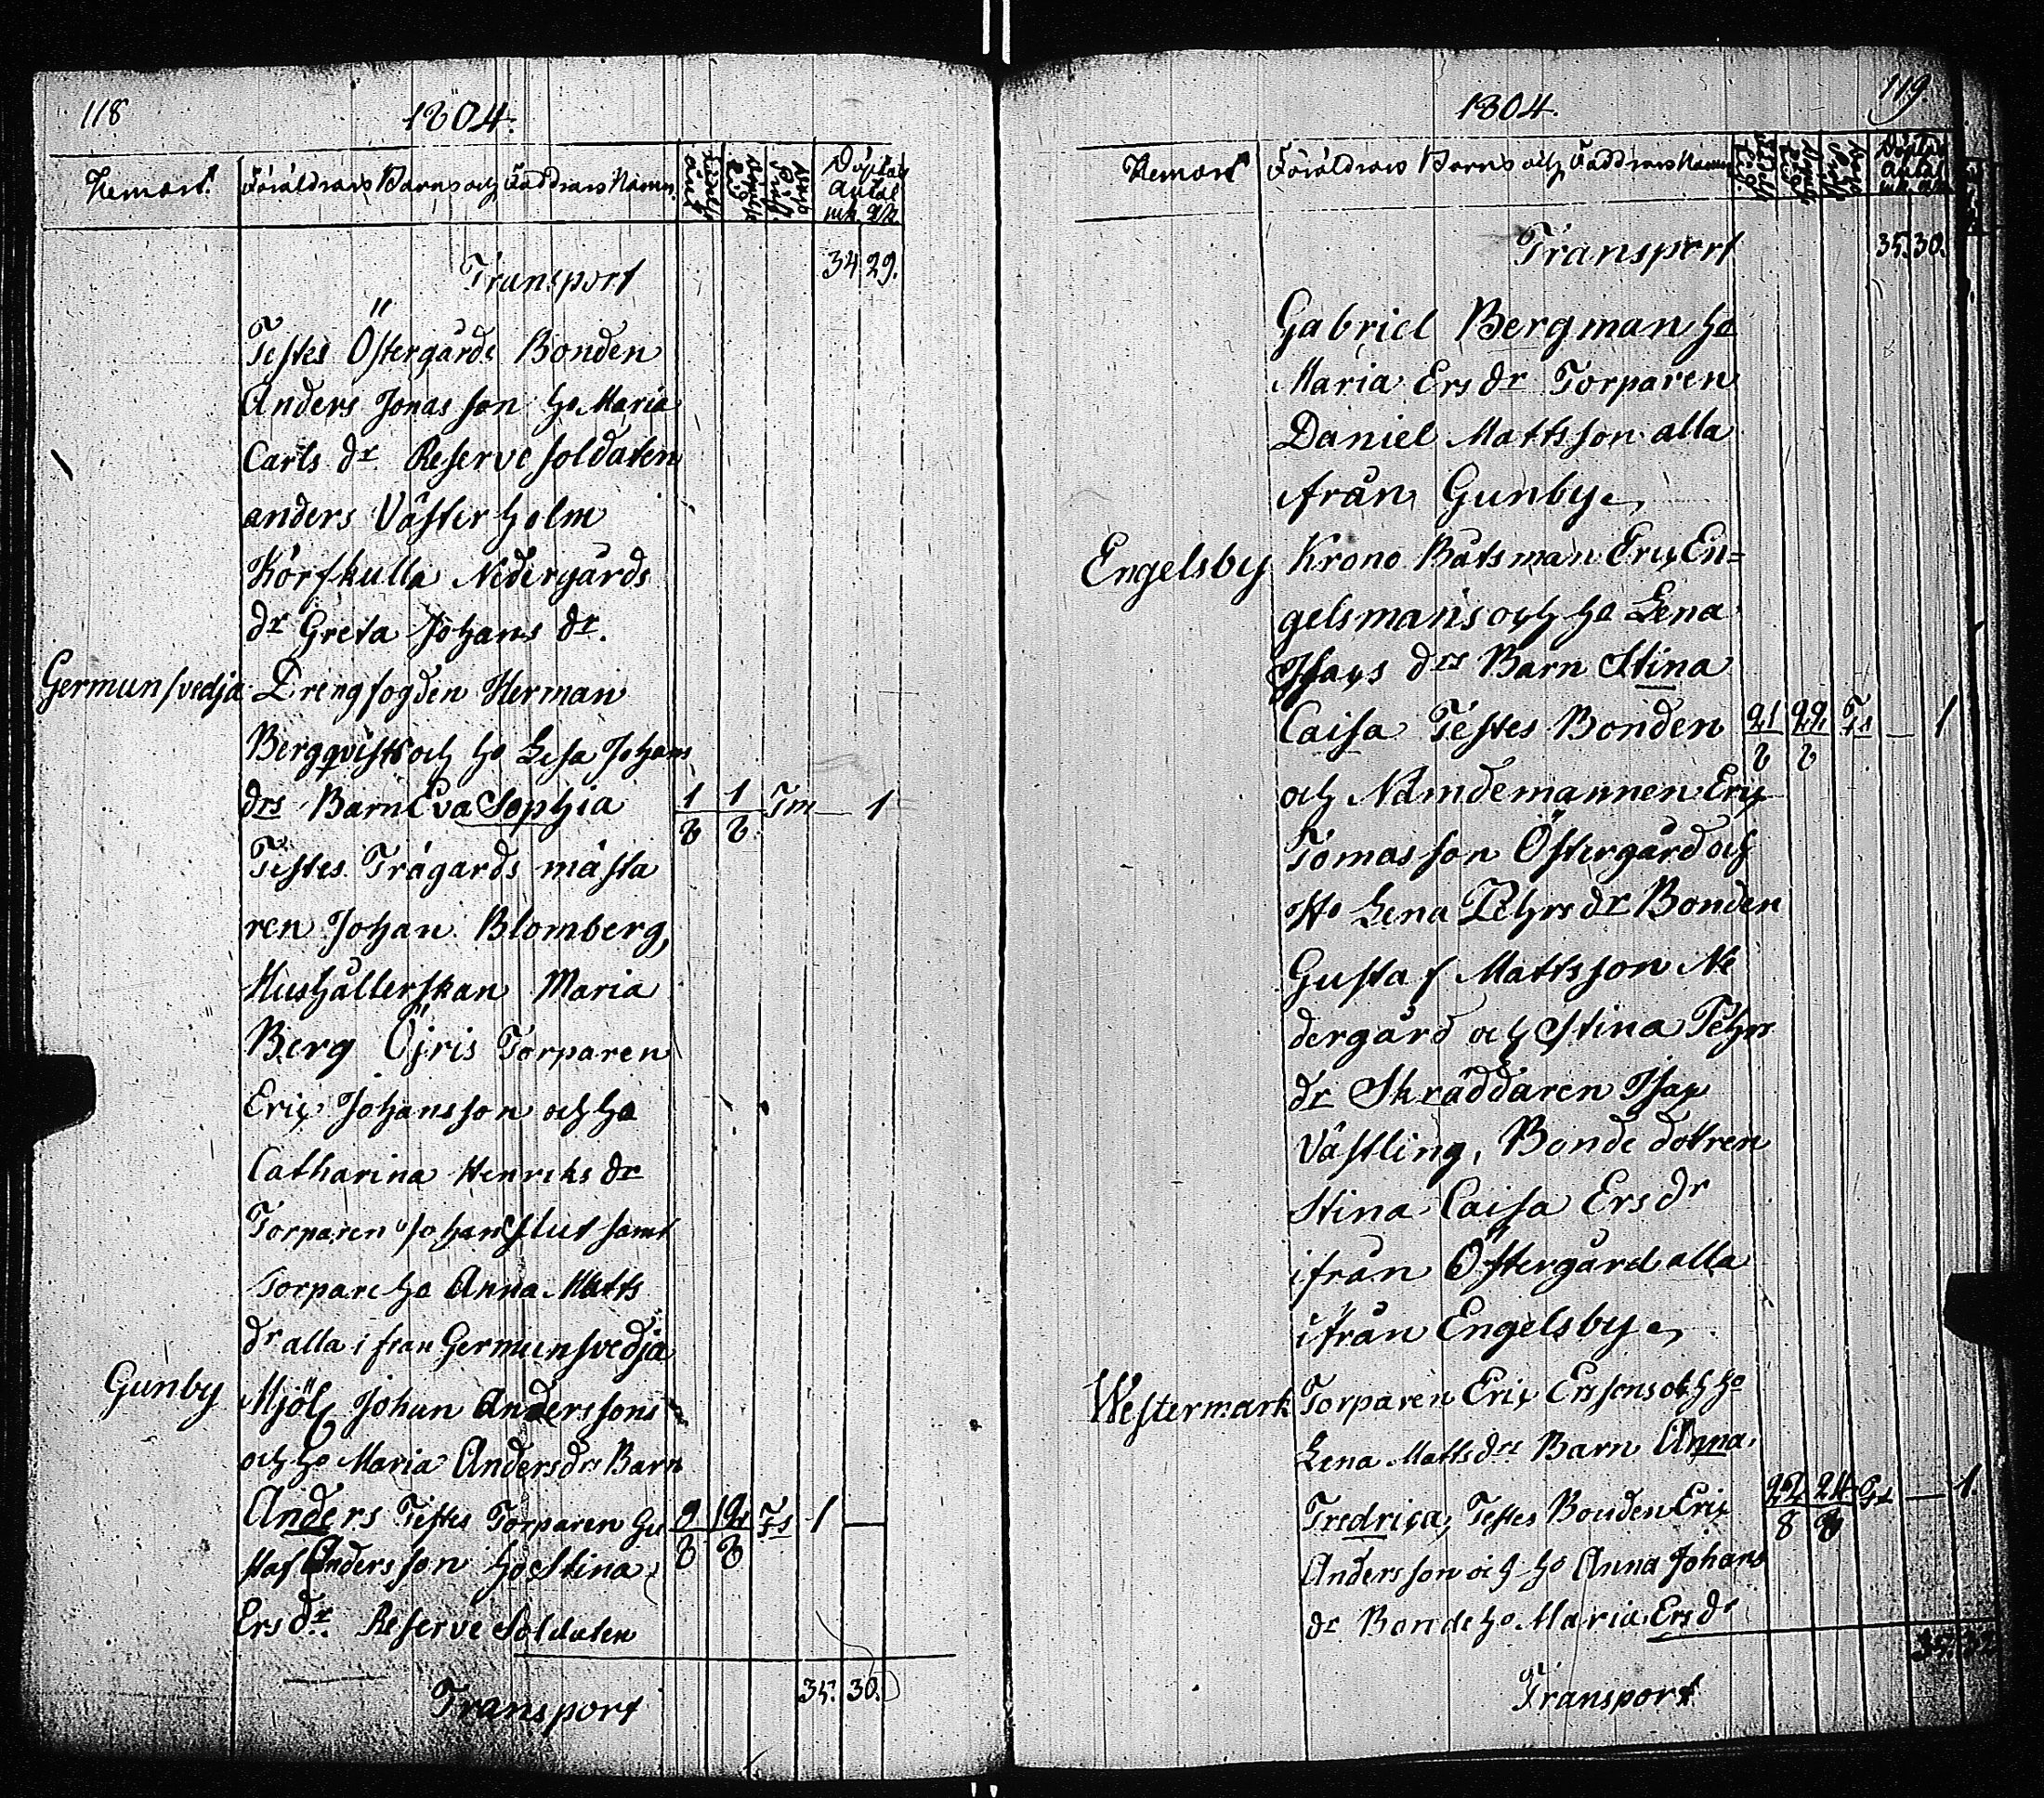 118
1804.
Hemort.
Föräldrars Barns och Faddrars Namn
Döptas
antal
mk. qk.
Transport
34 29.
Testes Östergårds Bonden
Anders Jonasson ho Maria
Carls dr Reserve soldaten
anders Västerholm
Körfkulla Nedergårds
dr Greta Johans dr.
Germunsvedja
Drengfogden Herman
Bergqvists och ho Lesa Johans
drs Barn Eva Sophia
1/8 1/8 Tm — 1
Testes Trägårds mästa
ren Johan Blomberg,
Hushållerskan Maria
Berg Öjris Torparen
Eric Johansson och ho
Catharina Henriks dr
Torparen Johan Slut samt
torpare ho Anna Matts
dr alla i från Germunsvedja
Gunby
Mjöl Johan Anderssons
och ho Maria Andersdrs Barn
Anders Testes Torparen Gu
9/8 12/8 Ts 1 —
staf Andersson ho Stina
Ers dr. Reserve Soldaten
35. 30.
Transport
119.
1804.
Hemort
Föräldrars Barns och Faddrars Namn
Döptas
antal
mk. qk.
Transport
35. 30.
Gabriel Bergman ho
Maria Ers dr Torparen
Daniel Mattsson alla
ifrån Gunby.
Engelsby
Krono Båtsman Eric En=
gelsmans och ho Lena
Isacs drs Barn Stina
Caisa Testes Bonden
21/8 22/8 Ts — 1
och Nämdemannen Eric
Tomasson Östergård och
Ho Lena Pehrs dr Bonden
Gustaf Mattsson Ne
dergård och Stina Pehrs
dr Skräddaren Isac
Västling, Bonde dottren
Stina Caisa Ers dr
ifrån Östergård alla
ifrån Engelsby.
Westermark
Torparen Eric Erssons och ho
Lena Matts drs Barn Anna
Fredrica, Testes Bonden Eric
22/8 24/8 Gt — 1.
Andersson och ho Anna Johans
dr Bonde ho Maria Ers dr
35. 32
Transport